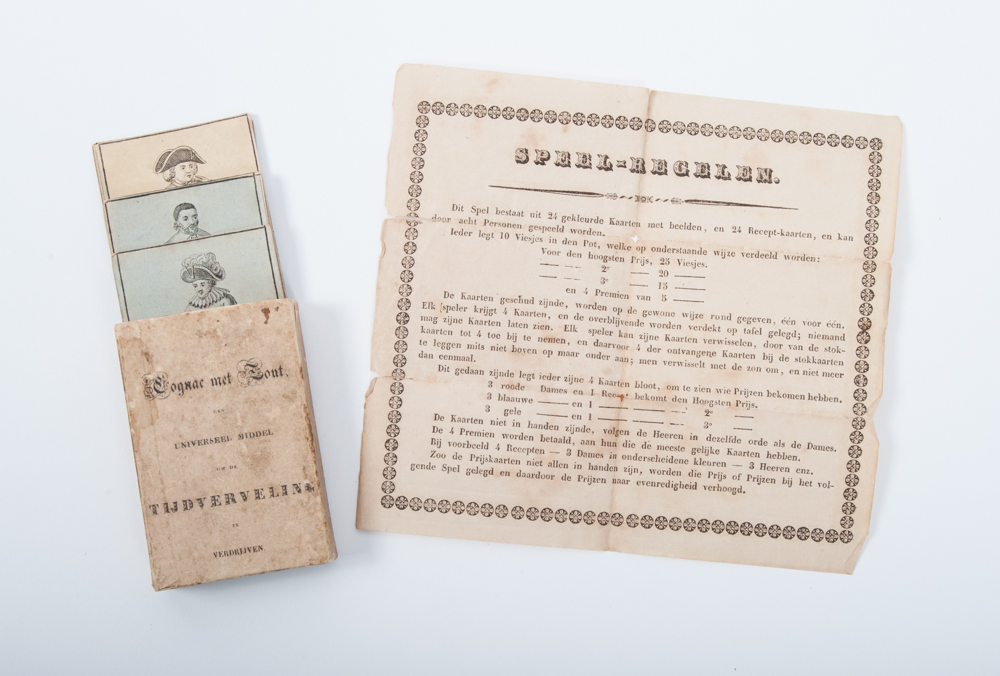 Cognac met Zout,
EEN
UNIVERSEEL MIDDEL
OM DE
TIJDVERVELING
TE
VERDRIJVEN.
SPEEL-REGELEN.
Dit Spel bestaat uit 24 gekleurde Kaarten met beelden, en 24 Recept-kaarten, en kan
door acht Personen gespeeld worden.
Ieder legt 10 Viesjes in den Pot, welke op onderstaande wijze verdeeld worden:
Voor den hoogsten Prijs, 25 Viesjes.
—— —— 2e —— 20 ——
—— —— 3e —— 15 ——
en 4 Premien van 5 ——
De Kaarten geschud zijnde, worden op de gewone wijze rond gegeven, één voor één.
Elk speler krijgt 4 Kaarten, en de overblijvende worden verdekt op tafel gelegd; niemand
mag zijne Kaarten laten zien. Elk speler kan zijne Kaarten verwisselen, door van de stok-
kaarten tot 4 toe bij te nemen, en daarvoor 4 der ontvangene Kaarten bij de stokkaarten
te leggen mits niet boven op maar onder aan; men verwisselt met de zon om, en niet meer
dan eenmaal.
Dit gedaan zijnde legt ieder zijne 4 Kaarten bloot, om te zien wie Prijzen bekomen hebben.
3 roode Dames en 1 Recept bekomt den Hoogsten Prijs.
3 blaauwe —— en 1 —— —— —— 2e ——
3 gele —— en 1 —— —— —— 3e ——
De Kaarten niet in handen zijnde, volgen de Heeren in dezelfde orde als de Dames.
De 4 Premien worden betaald, aan hun die de meeste gelijke Kaarten hebben.
Bij voorbeeld 4 Recepten — 3 Dames in onderscheidene kleuren — 3 Heeren enz.
Zoo de Prijskaarten niet allen in handen zijn, worden die Prijs of Prijzen bij het vol-
gende Spel gelegd en daardoor de Prijzen naar evenredigheid verhoogd.